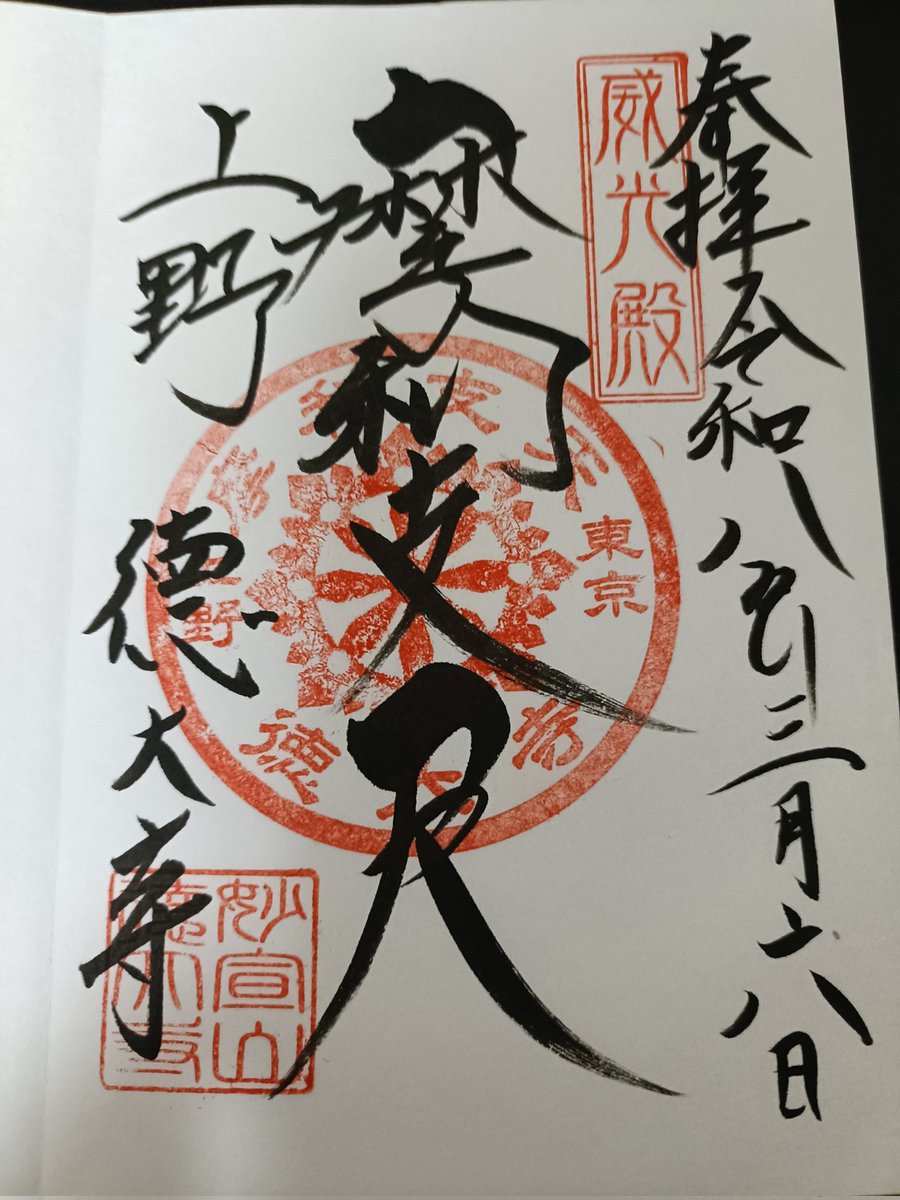 奉拝 令和八年三月十八日
威光殿
摩利支天
上野 徳大寺
摩利支天
東京
上野
徳大寺
妙宣山
徳大寺